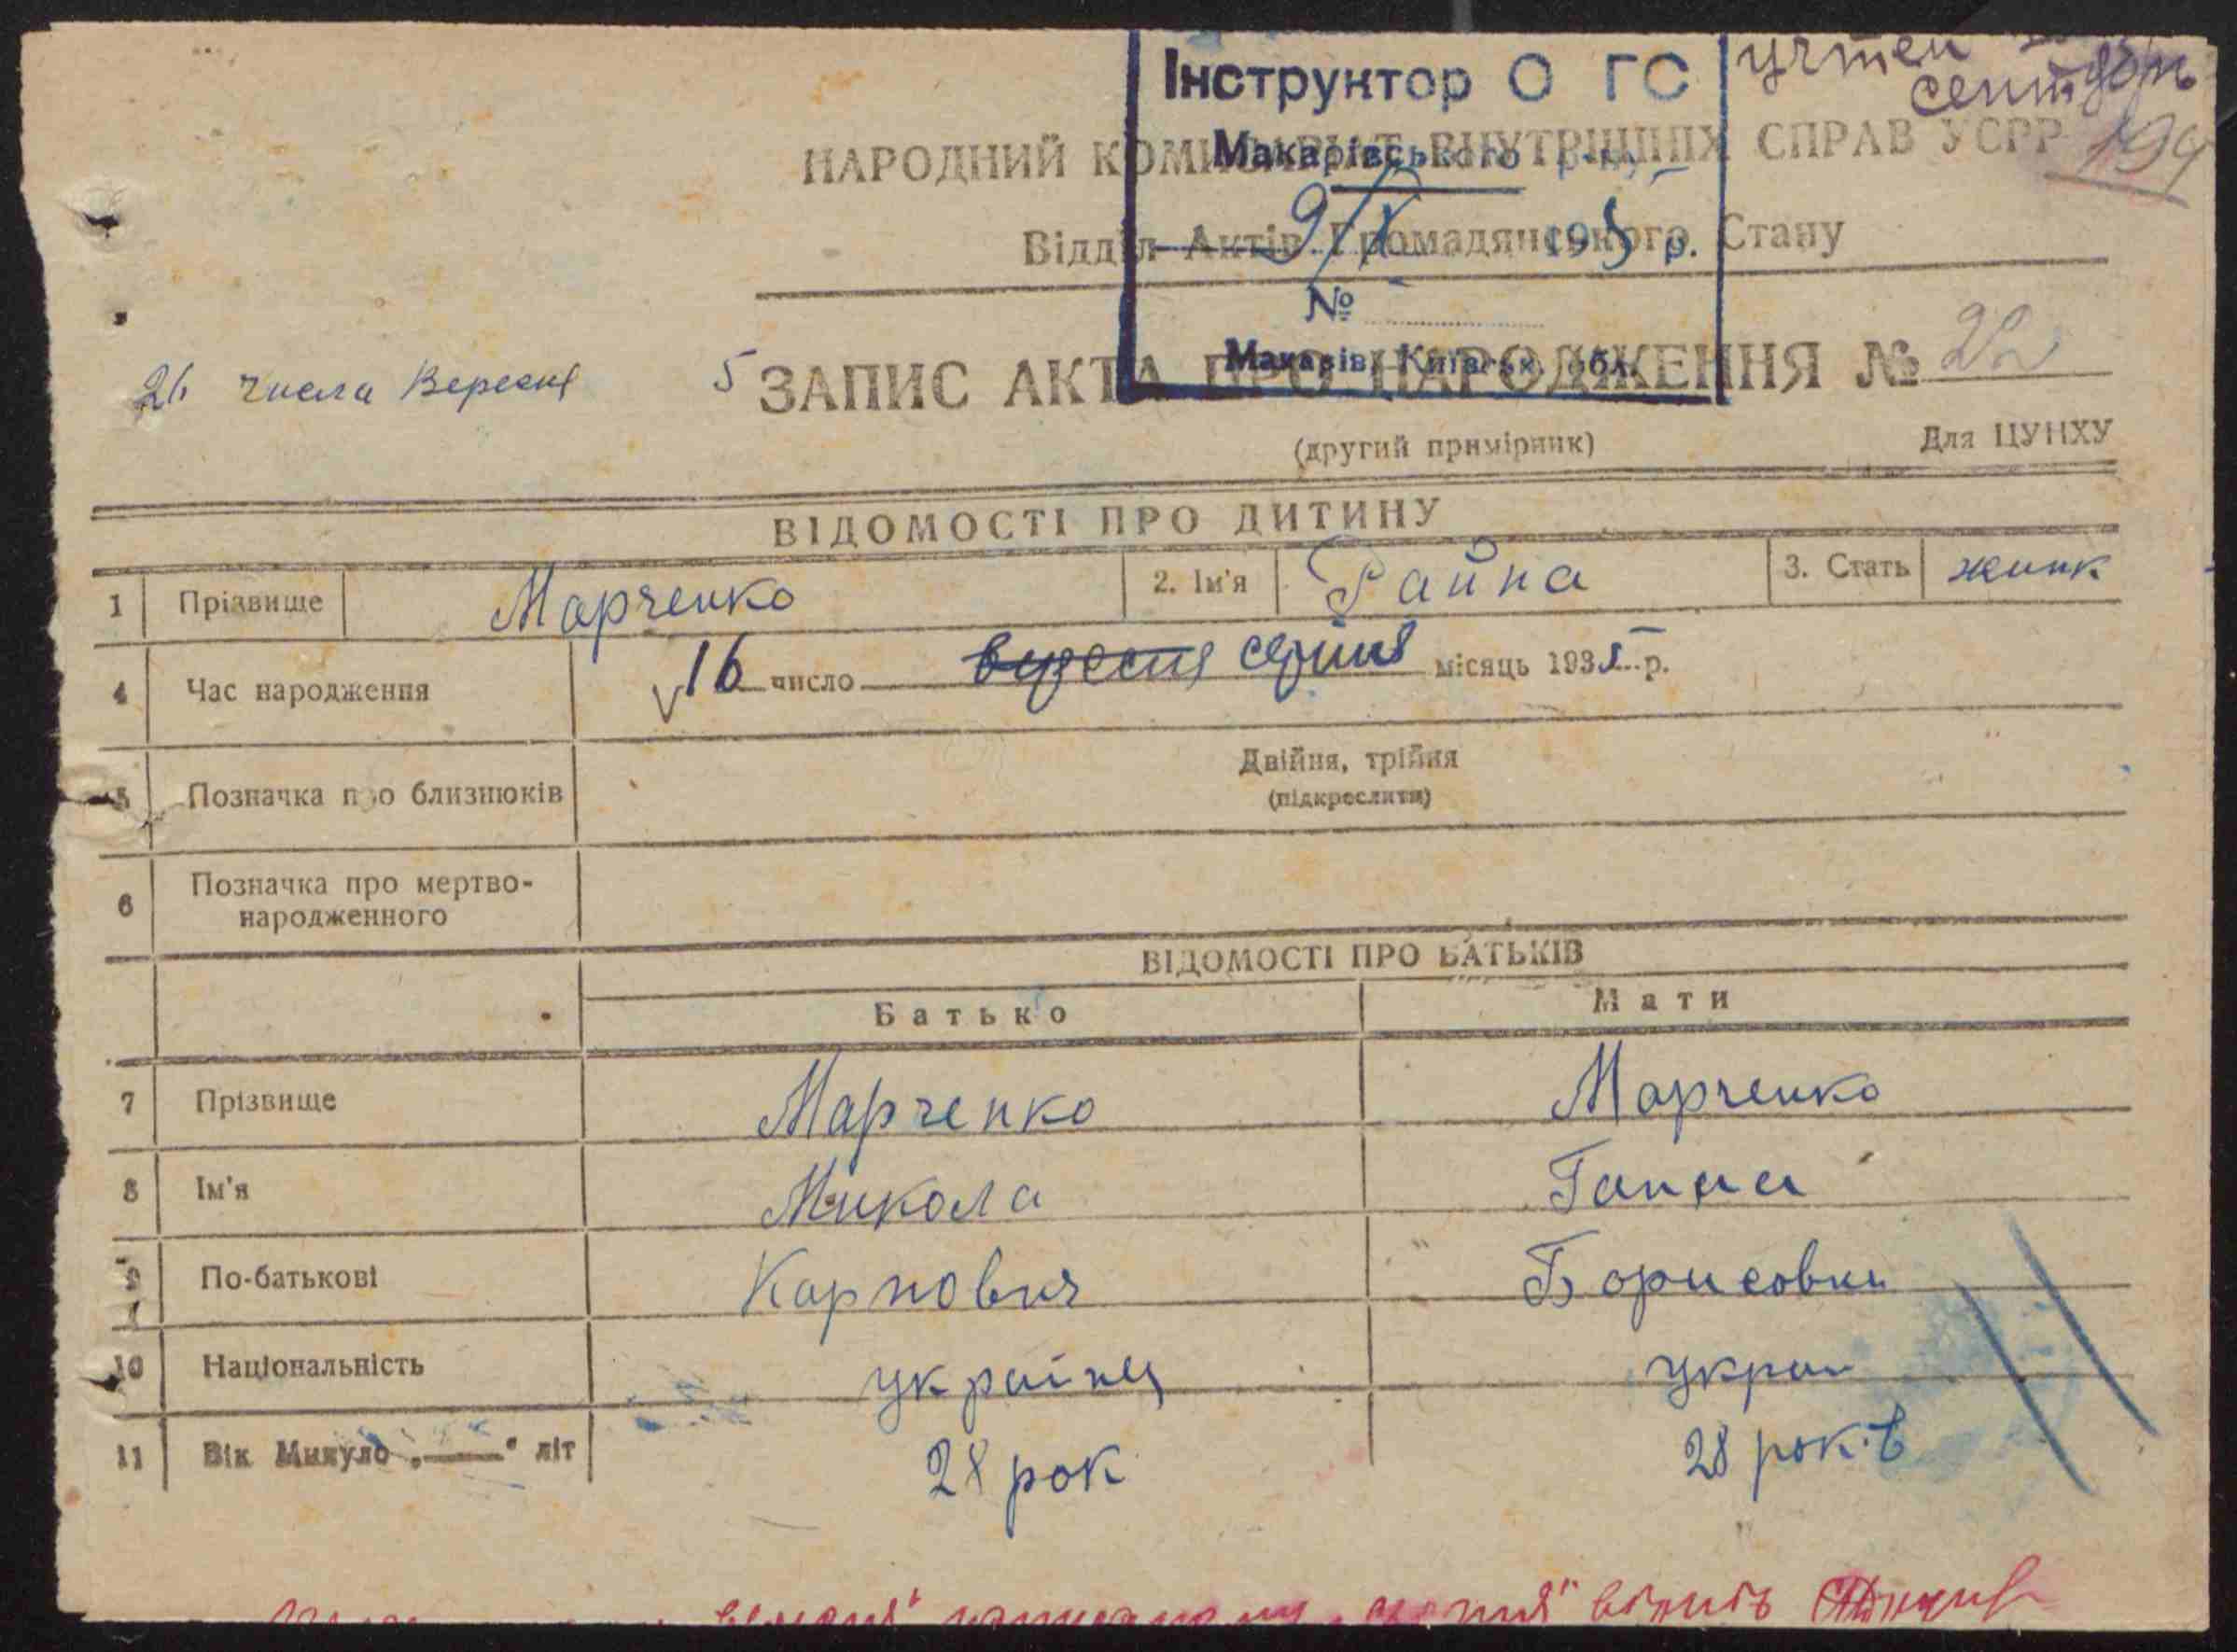 Інструктор О ГС
учтен
сент
НАРОДНИЙ КОМІСАРІАТ ВНУТРІШНІХ СПРАВ УСРР
Макарівського р-ну
194
Відділ Актів Громадянського Стану
9/X 1935 р.
№
26 числа Вересня 5
ЗАПИС АКТА ПРО НАРОДЖЕННЯ № 22
Макарів, Київськ. обл.
(другий примірник)
Для ЦУНХУ
ВІДОМОСТІ ПРО ДИТИНУ
1 Прізвище Марченко 2. Ім'я Райна 3. Стать жинк
4 Час народження 16 число вересня серпня місяць 1935 р.
5 Позначка про близнюків Двійня, трійня
(підкреслити)
6 Позначка про мертво-
народженного
ВІДОМОСТІ ПРО БАТЬКІВ
Батько Мати
7 Прізвище Марченко Марченко
8 Ім'я Микола Ганна
9 По-батькові Карпович Борисовна
10 Національність українец украи
11 Вік Минуло „—“ літ 28 рок 28 років
"вересня" написаному "серпня" вірить